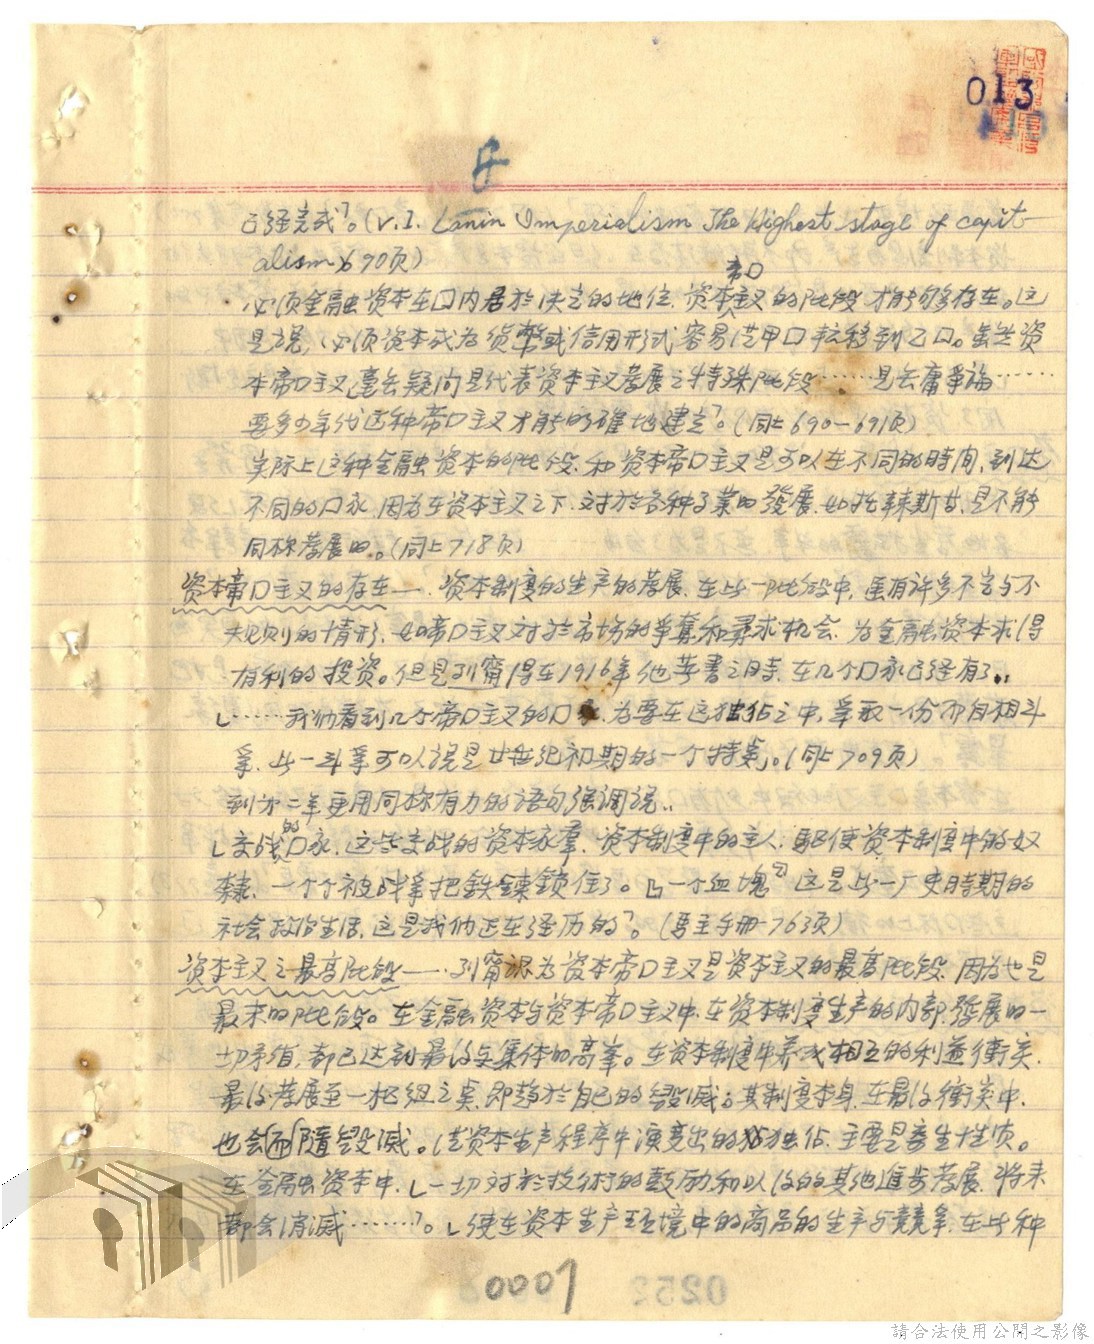 013
已经完成」。(V.I. Lanin Imperialism The Highest stage of capit-
alism 690页)
帝口
必须金融资本在口内居於决定的地位,资本主义的阶段才能够存在。这
是说,必须资本成为货幣或信用形式容易从甲口転移到乙口。虽然资
本帝口主义毫无疑问是代表资本主义发展之特殊阶段……是无庸争論……
要多少年代这种帝口主义才能的確地建立」。(同上690-691页)
实际上这种金融资本的阶段和资本帝口主义是可以在不同的時间,到达
不同的口家,因为在资本主义之下,对於各种事業的發展,如托辣斯等,是不能
同样发展的。(同上718页)
资本帝口主义的存在——资本制度的生产的发展,在此一阶段中,虽有许多不
规则的情形,如帝口主义对於市场的争奪和寻求机会,为金融资本求得
有利的投资。但是列甯得在1916年他著書之時,在几个口家已经有了:
「……我们看到几个帝口主义的口家,为要在这独佔之中,争取一份而自相斗
争,此一斗争可以说是廿世纪初期的一个特点」。(同上709页)
到次二年更用同样有力的語句强调说:
的
「交战口家,这些交战的资本家羣,资本制度中的主人,驅使资本制度中的奴
隸,一个个被战争把鉄鍊鎖住了。一个血塊 这是此一历史時期的
社会政治生活,这是我们正在经历的」。(馬主手册-763页)
资本主义之最高阶段——列甯認为资本帝口主义是资本主义的最高阶段,因为也是
最末的阶段。在金融资本与资本帝口主义中,在资本制度生产的内部發展的一
切矛盾,都已达到最後与集体的高峯。在资本制度中养成相互的利益衝突,
最後发展至一极组之点,即趋於自己的毁滅;其制度本身,在最後衝突中,
也会而随毁滅。从资本生产程序中演变出的独佔,主要是寄生性质。
在金融资本中,「一切对於技術的鼓励和以後的其他進步发展,将来
都会消滅……」。「使在资本生产环境中的商品的生产与競争,在此种
0007
0252
請合法使用公開之影像